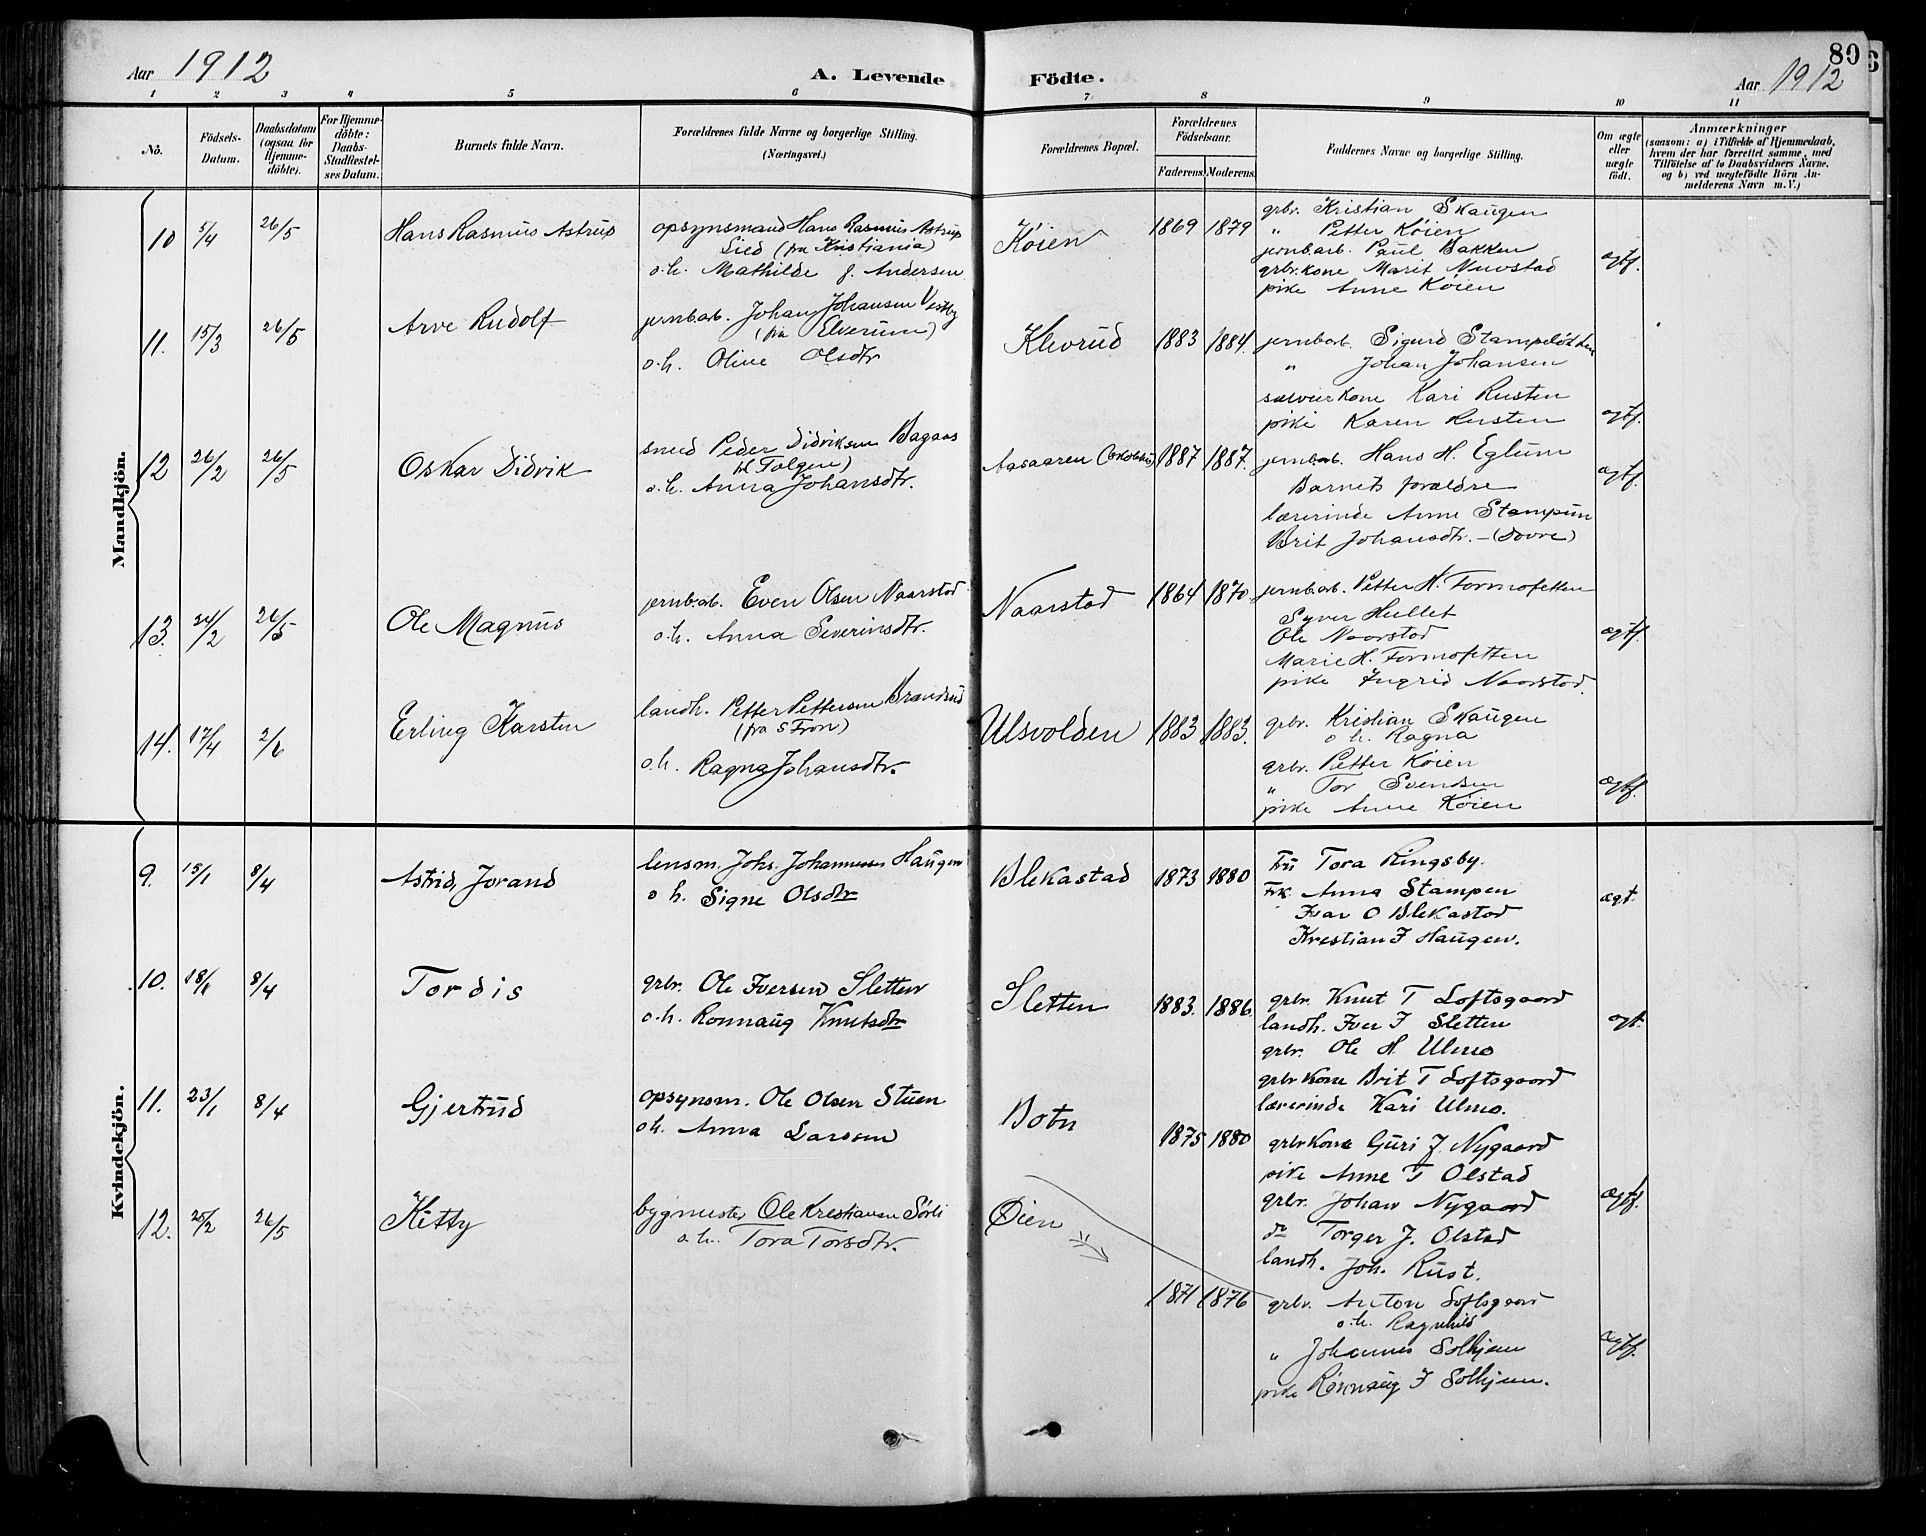 Aar 1912 A. Levende Födte. Aar 1912 80
1 2 3 4 5 6 7 8 9 10 11
No.
Födsels-Datum.
Daabsdatum (ogsaa for Hjemme-döbte).
For Hjemme-döbte: Daabs-Stadfestel-ses Datum.
Barnets fulde Navn.
Forældrenes fulde Navne og borgerlige Stilling.
(Næringsvei.)
Forældrenes Bopæl.
Forældrenes Födselsaar.
Faderens. Moderens.
Faddernes Navne og borgerlige Stilling.
Om ægte eller uægte födt.
Anmærkninger
(saasom: a) i Tilfælde af Hjemmedaab, hvem der har forrettet samme, med Tilföielse af to Daabsvidners Navne. og b) ved uægtefödte Börn An-melderens Navn m.V.)
Mandkjön.
10 5/4 26/5 Hans Rasmus Astrup
opsynsmand Hans Rasmus Astrup
Lied (fra Kristiania)
o.h. Mathilde f. Andersen
Køien 1869 1879
grbr. Kristian Skaugen
" Petter Køien
jernbarb. Paul Bakken
grbr.kone Marit
pike Anne Køien
ægtf.
11. 15/3 26/5 Arve Rudolf
jernbarb. Johan Johansen Vestby
(fra Elverum)
o.h. Oline Olsdtr
Klevrud 1883 1884.
jernbarb. Sigurd Stampeløkken
" Johan Johansen
kone Kari Rusten
pike Karen Rusten
ægtf.
12 26/2 26/5 Oskar Didvik
smed Peder Didviksen Bagaas
(fr Tolgen)
o.h. Anna Johansdtr.
Aasaaren 1887 1887.
jernbarb. Hans H. Eglum
Barnets forældre
lærerinde Anne Stampen
Brit Johansdtr. - (Dovre)
ægtf.
13. 24/2 26/5 Ole Magnus
jernb.arb. Even Olsen Naarstad
o.h. Anna Severinsdtr.
Naarstad 1864 1870.
jernbarb. Petter H. Formofetten
Syver Hullet
Ole Naarstad
Marie H. Formofetten
pike Ingrid Naarstad.
ægtf.
14. 17/4 2/6 Erling Karsten
landh. Petter Pettersen Brandrud
(fra S Fron)
o.h. Ragna Johansdtr.
Ulsvolden 1883 1883.
grbr. Kristian Skaugen
o h. Ragna
grbr. Petter Køien
" Tor Svendsen
pike Anne Køien
ægtf.
Kvindekjön.
9. 15/1 8/4 Astrid, Jorand
lensm. Johs. Johannessen Haugen
o h. Signe Olsdtr
Blekastad 1873 1880
Fru Tora Ringsby.
Frk Anna Stampen
Ivar O Blekastad
Krestian J Haugen.
ægt.
10. 18/1 8/4 Tordis
grbr. Ole Iversen Sletten
o.h. Rønnaug Knutsdtr
Sletten 1883. 1886.
grbr. Knut T Loftsgaard
landh. Iver I Sletten
grbr. Ole H. Ulmo
grbr Kone Brit T Loftsgaard
lærerinde Kari Ulmo.
ægt.
11. 23/1 8/4 Gjertrud
opsynsm. Ole Olsen Stuen
o h. Anna Larssen
Botn 1875 1880
grbr Kone Guri J. Nygaard
pike Anne T Olstad
grbr. Johan Nygaard
do Torger J. Olstad
landh. Joh. Rust.
ægtf.
12. 25/2 26/5 Kitty
bygmester Ole Krestiansen Sørli
o.h. Tora Torsdtr.
Øien 1871 1876
grbr. Anton Loftsgaard
o.h. Ragnhild
" Johannes Solhjem
pike Rønnaug J Solhjem.
ægtf.